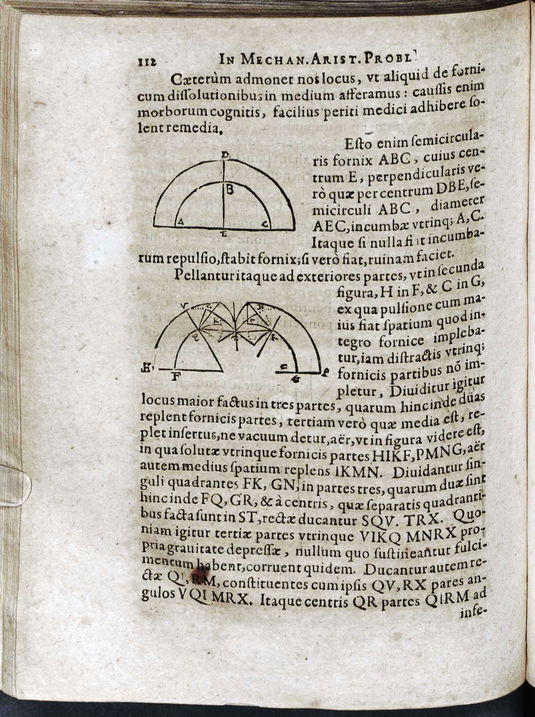 112
IN MECHAN. ARIST. PROBL
Cæterùm admonet nos locus, vt aliquid de forni-
cum dissolutionibus in medium afferamus: caussis enim
morborum cognitis, facilius periti medici adhibere so-
lent remedia.
Esto enim semicircula-
ris fornix ABC, cuius cen-
trum E, perpendicularis ve-
rò quæ per centrum DBE, se-
micirculi ABC, diameter
AEC, incumbæ vtrinq; A, C.
Itaque si nulla fiat incumba-
rum repulsio, stabit fornix; si verò fiat, ruinam faciet.
D
B
A
C
E
Pellantur itaque ad exteriores partes, vt in secunda
figura, H in F, & C in G,
ex qua pulsione cum ma-
ius fiat spatium quod in-
tegro fornice impleba-
tur, iam distractis vtrinq;
fornicis partibus nō im-
pletur, Diuiditur igitur
H
F
locus maior factus in tres partes, quarum hinc inde duas
replent fornicis partes, tertiam verò quæ media est, re-
plet insertus, ne vacuum detur, aër, vt in figura videre est,
in qua solutæ vtrinque fornicis partes HIKF, PMNG, aër
autem medius spatium replens IKMN. Diuidantur sin-
guli quadrantes FK, GN, in partes tres, quarum duæ sint
hinc inde FQ, GR, & à centris, quæ separatis quadranti-
bus facta sunt in ST, rectæ ducantur SQV. TRX. Quo-
niam igitur tertiæ partes vtrinque VIKQ MNRX pro-
pria grauitate depressæ, nullum quo sustineantur fulci-
mentum habent, corruent quidem. Ducantur autem re-
ctæ QI, RM, constituentes cum ipsis QV, RX pares an-
gulos VQI MRX. Itaque centris QR partes QIRM ad
infe-